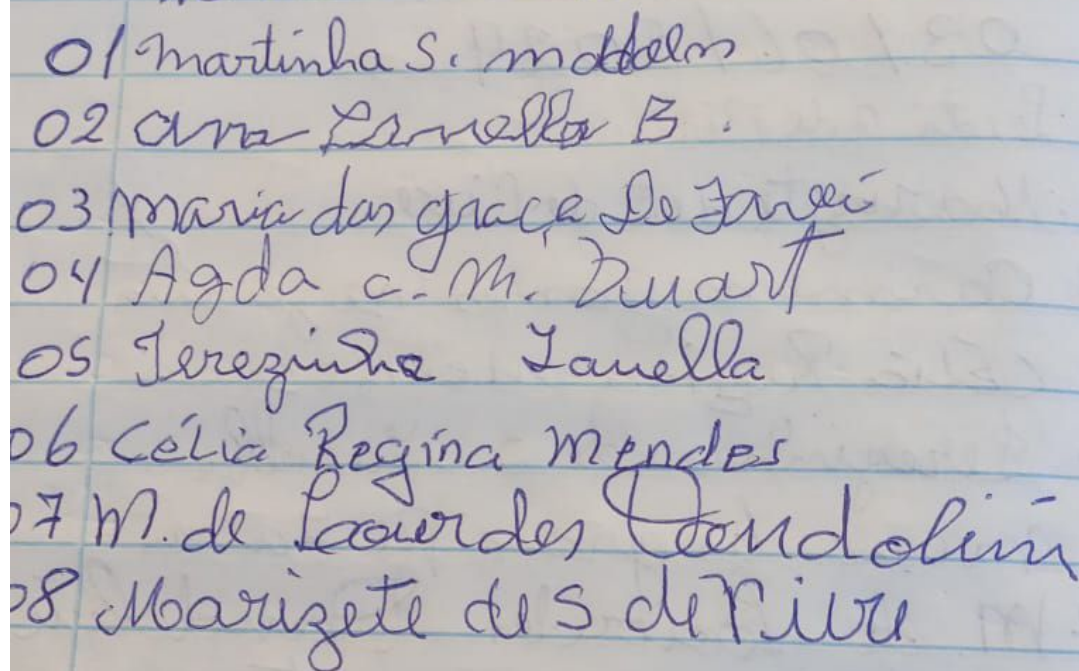 01 Martinha S. mattelm
02 Ana Zanella B.
03 Maria das graça De Faveri
04 Agda c. M. Duart
05 Terezinha Zanella
06 Célia Regina Mendes
07 M. de Lourdes Dandolini
08 Marizete de S de